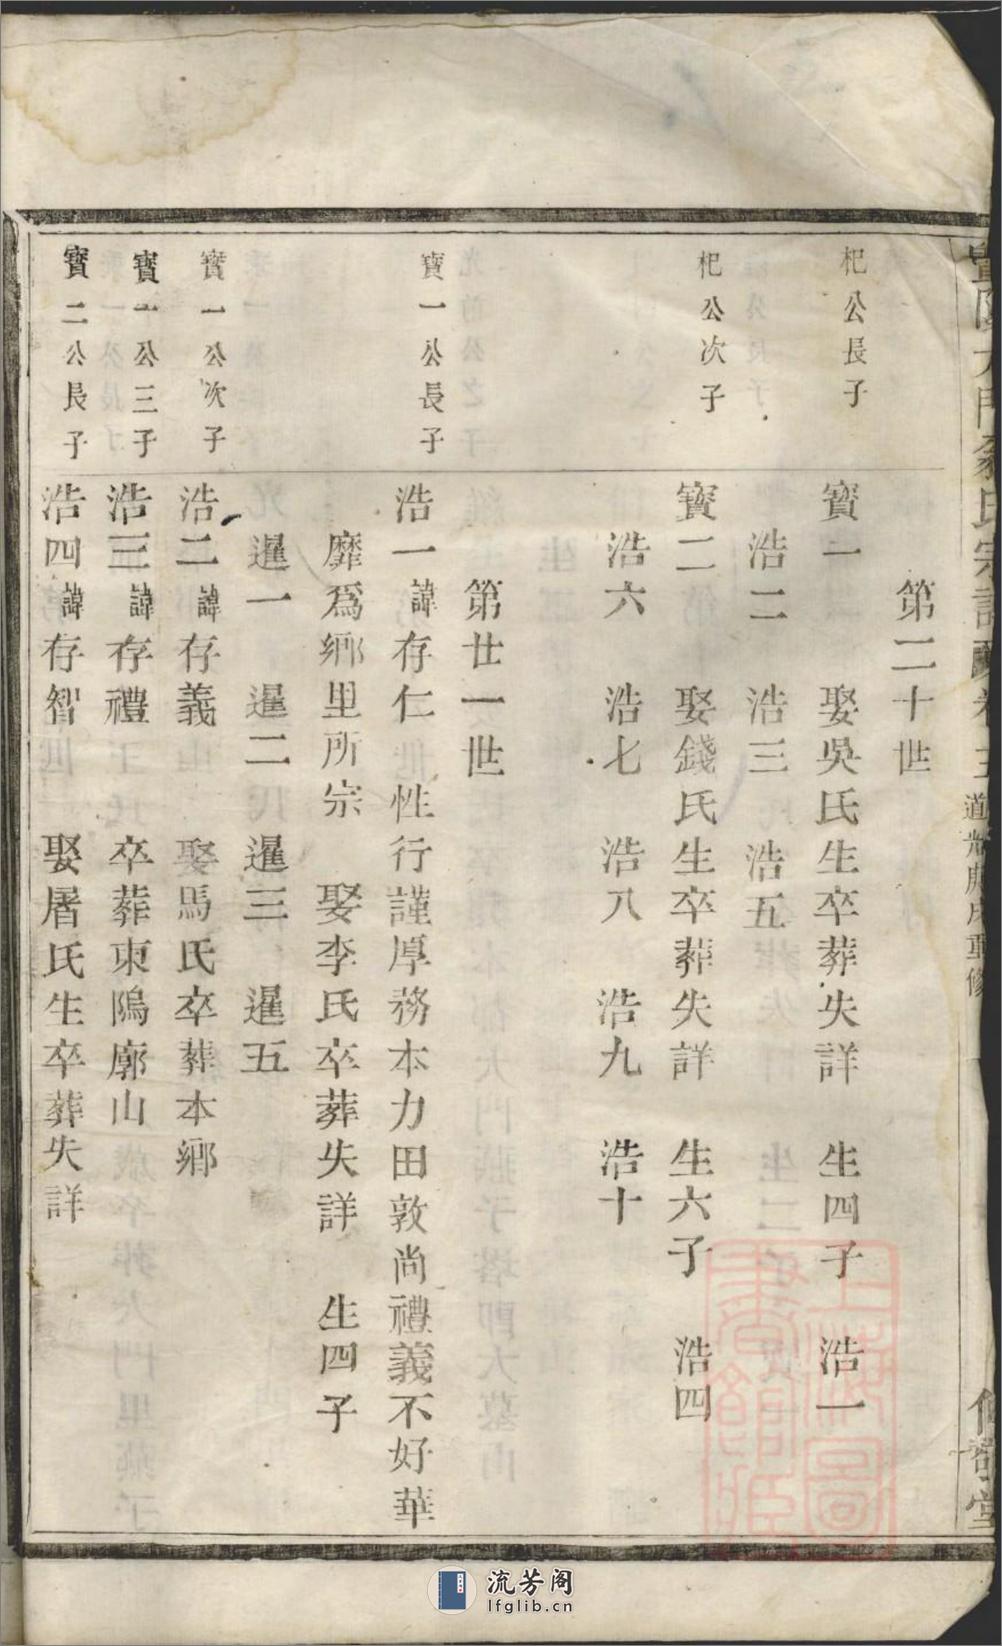 第二十世
杞公長子
寶一 娶吳氏生卒葬失詳 生四子 浩一
浩二 浩三 浩五
杞公次子
寶二 娶錢氏生卒葬失詳 生六子 浩四
浩六 浩七 浩八 浩九 浩十
第廿一世
寶一公長子
浩一諱存仁 性行謹厚務本力田敦尚禮義不好華
靡爲鄉里所宗 娶李氏卒葬失詳 生四子
暹一 暹二 暹三 暹五
寶一公次子
浩二諱存義 娶馬氏卒葬本鄉
寶一公三子
浩三諱存禮 卒葬東隖廓山
寶二公長子
浩四諱存智 娶屠氏生卒葬失詳
上海圖書館藏
流芳阁
lfglib.cn